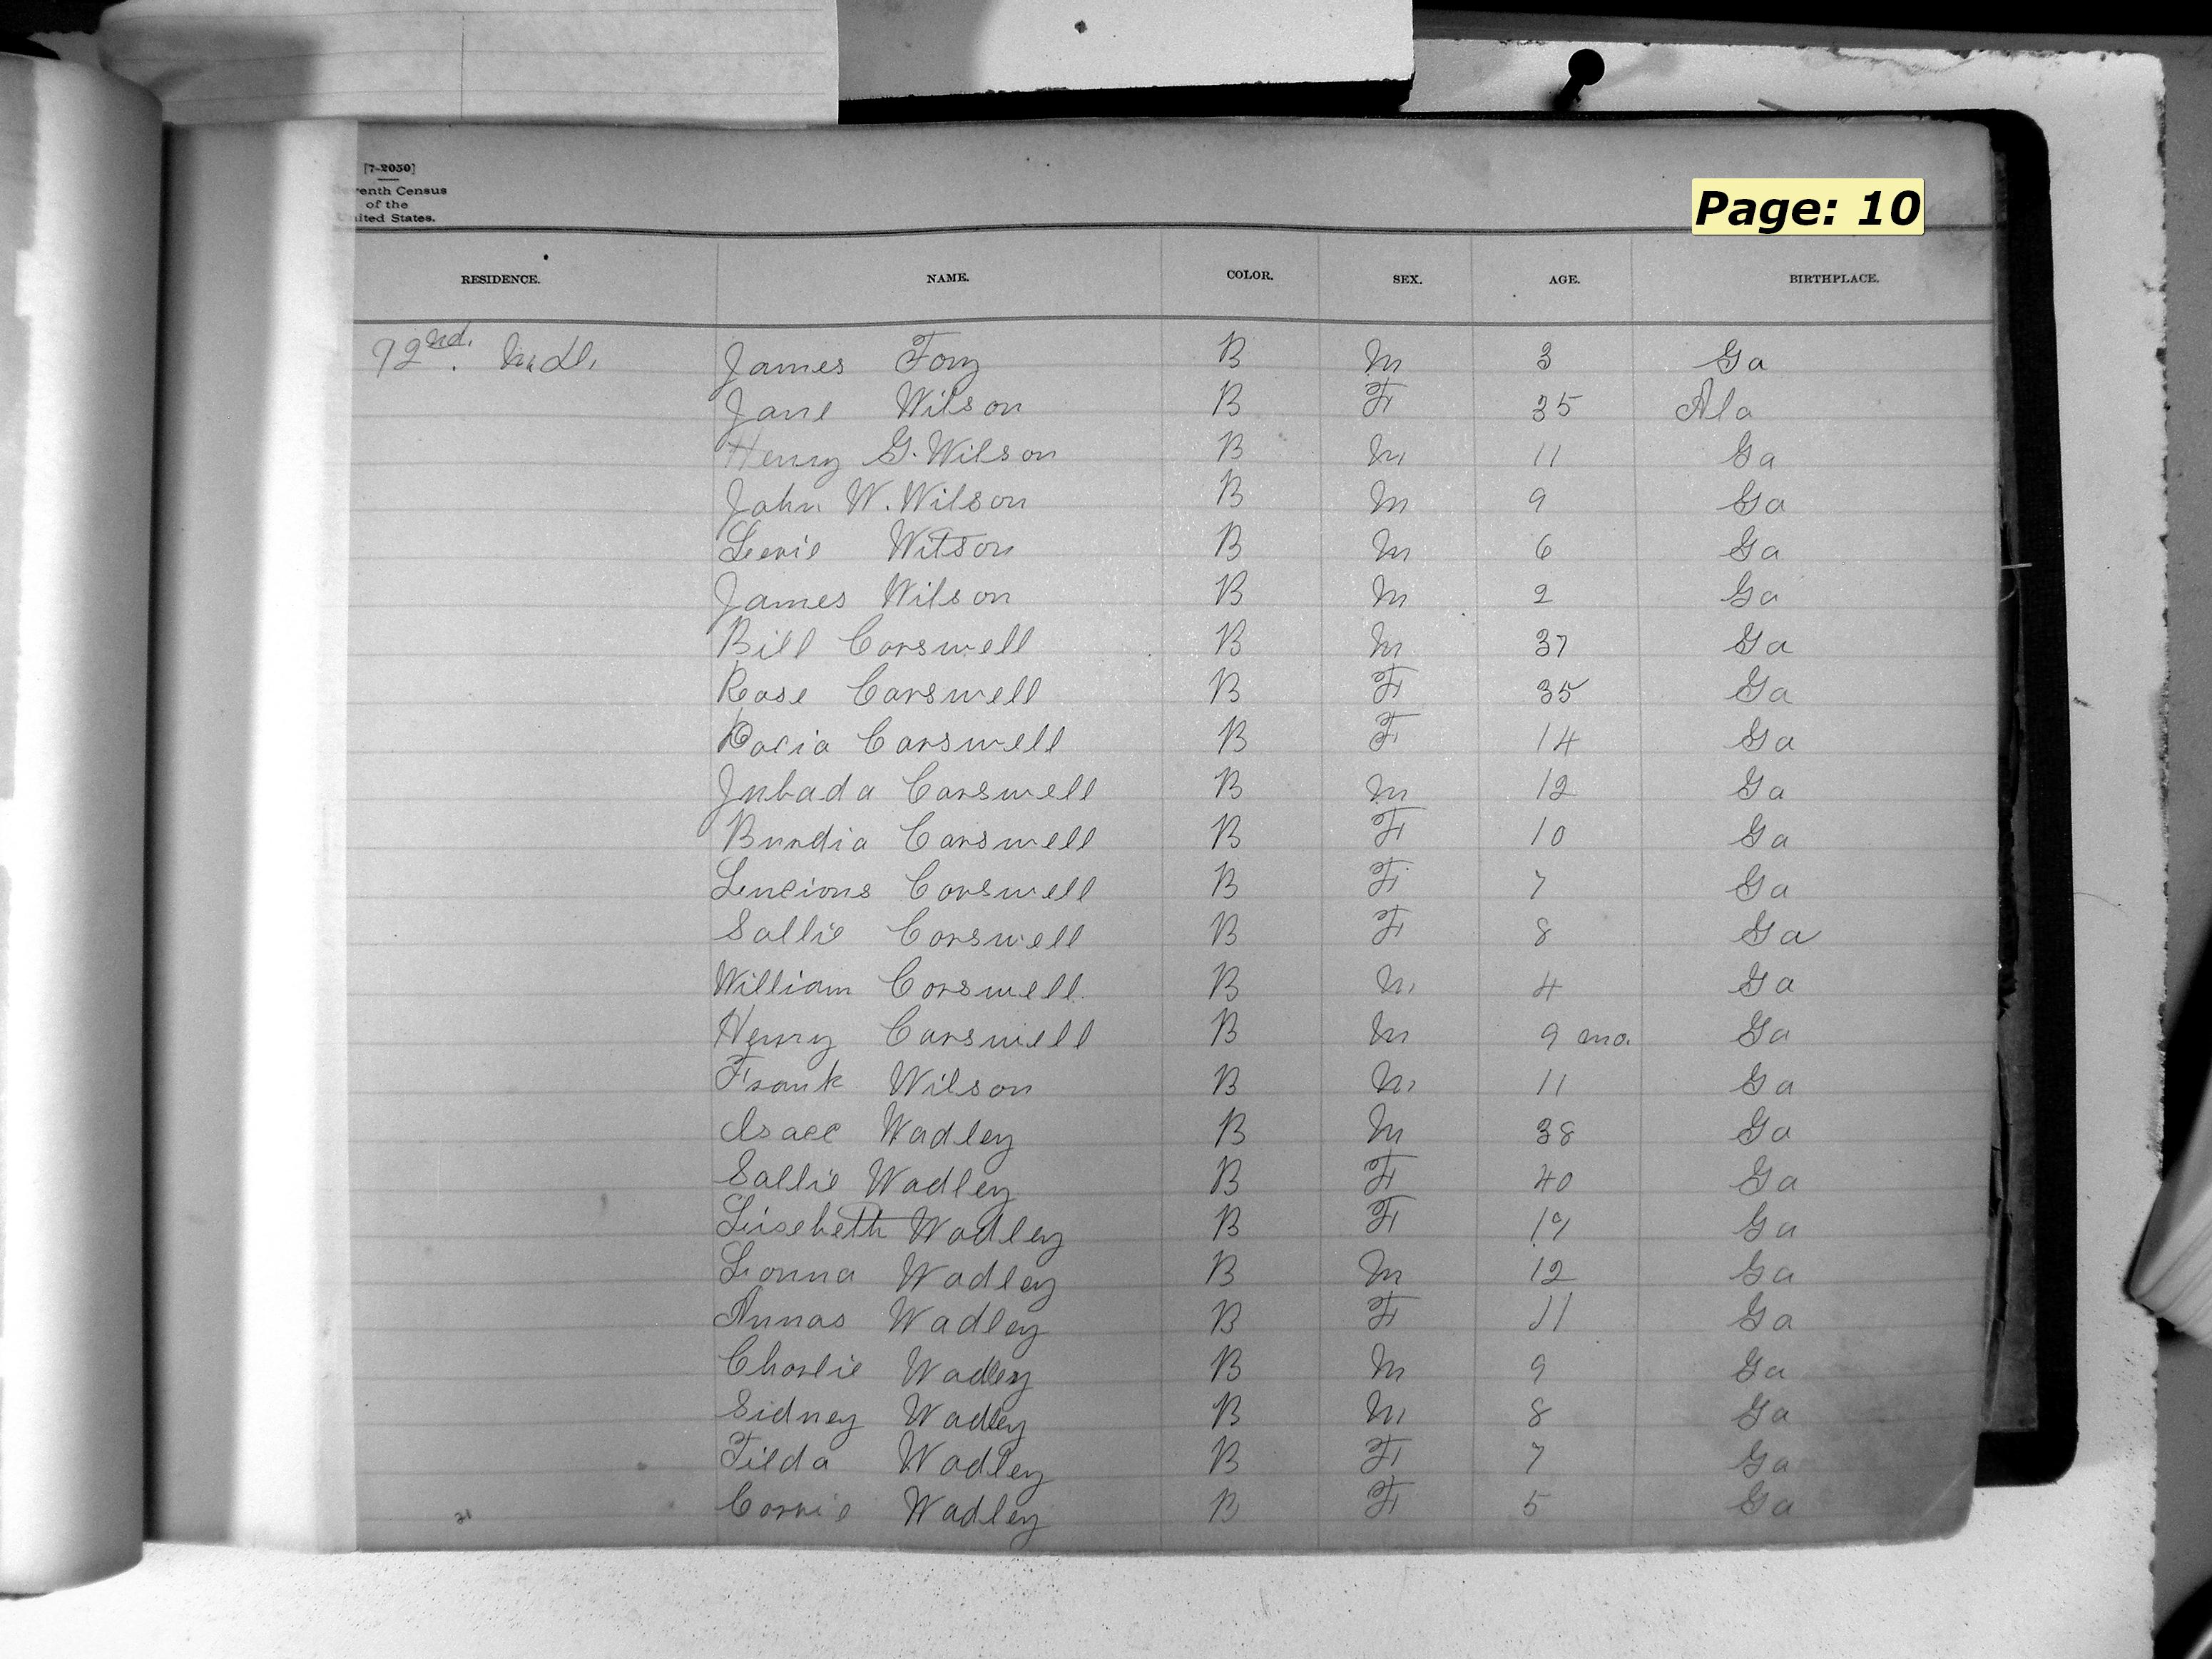 [7-2050]
Page: 10
enth Census
of the
United States.
RESIDENCE. NAME. COLOR. SEX. AGE. BIRTHPLACE.
92nd. James Foy B M 3 Ga
Jane Wilson B F 35 Ala
Henry G. Wilson B M 11 Ga
John W. Wilson B M 9 Ga
Wilson B M 6 Ga
James Wilson B M 2 Ga
Bill Carswell B M 37 Ga
Rose Carswell B F 35 Ga
Carswell B F 14 Ga
Carswell B M 12 Ga
Burdia Carswell B F 10 Ga
Carswell B F 7 Ga
Sallie Carswell B F 8 Ga
William Carswell B M 4 Ga
Henry Carswell B M 9 mo. Ga
Frank Wilson B M 11 Ga
Isaec Wadley B M 38 Ga
Sallie Wadley B F 40 Ga
Lisebeth Wadley B F Ga
Lonna Wadley B M 12 Ga
Annas Wadley B F 11 Ga
Charlie Wadley B M 9 Ga
Sidney Wadley B M 8 Ga
Tilda Wadley B F 7 Ga
Corrie Wadley B F 5 Ga